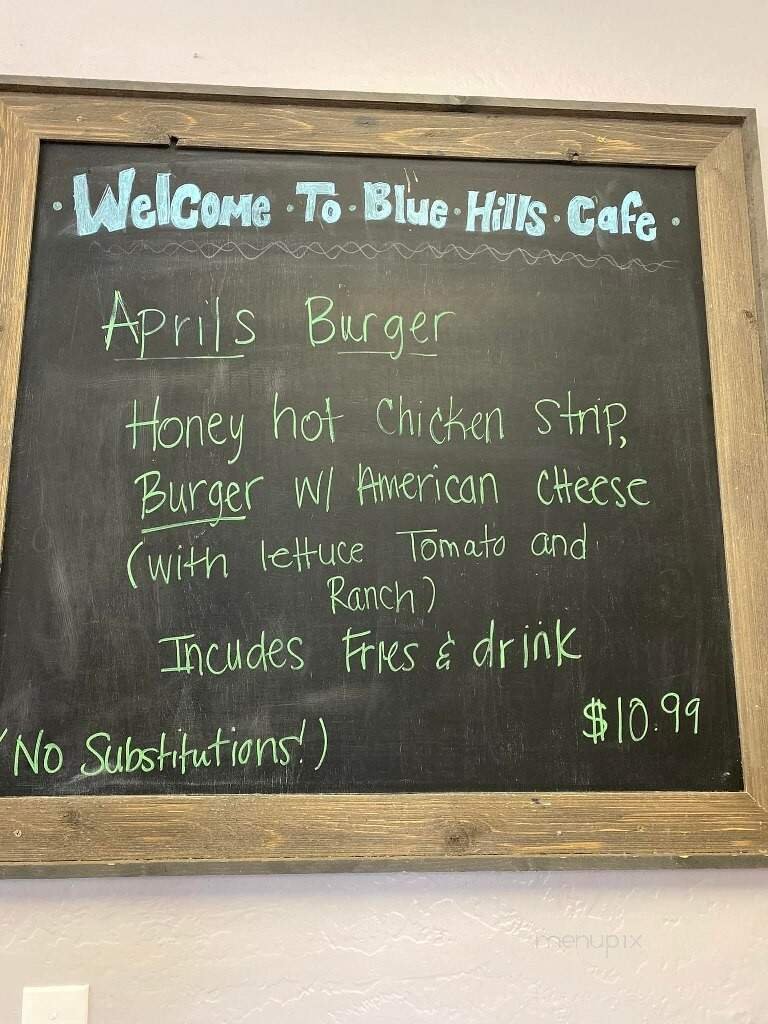 · Welcome · To · Blue · Hills · Cafe ·
Aprils Burger
Honey hot Chicken Strip,
Burger w/ American CHeese
(with lettuce Tomato and
Ranch)
Incudes Fries & drink
$10.99
(No Substitutions!)
menupix